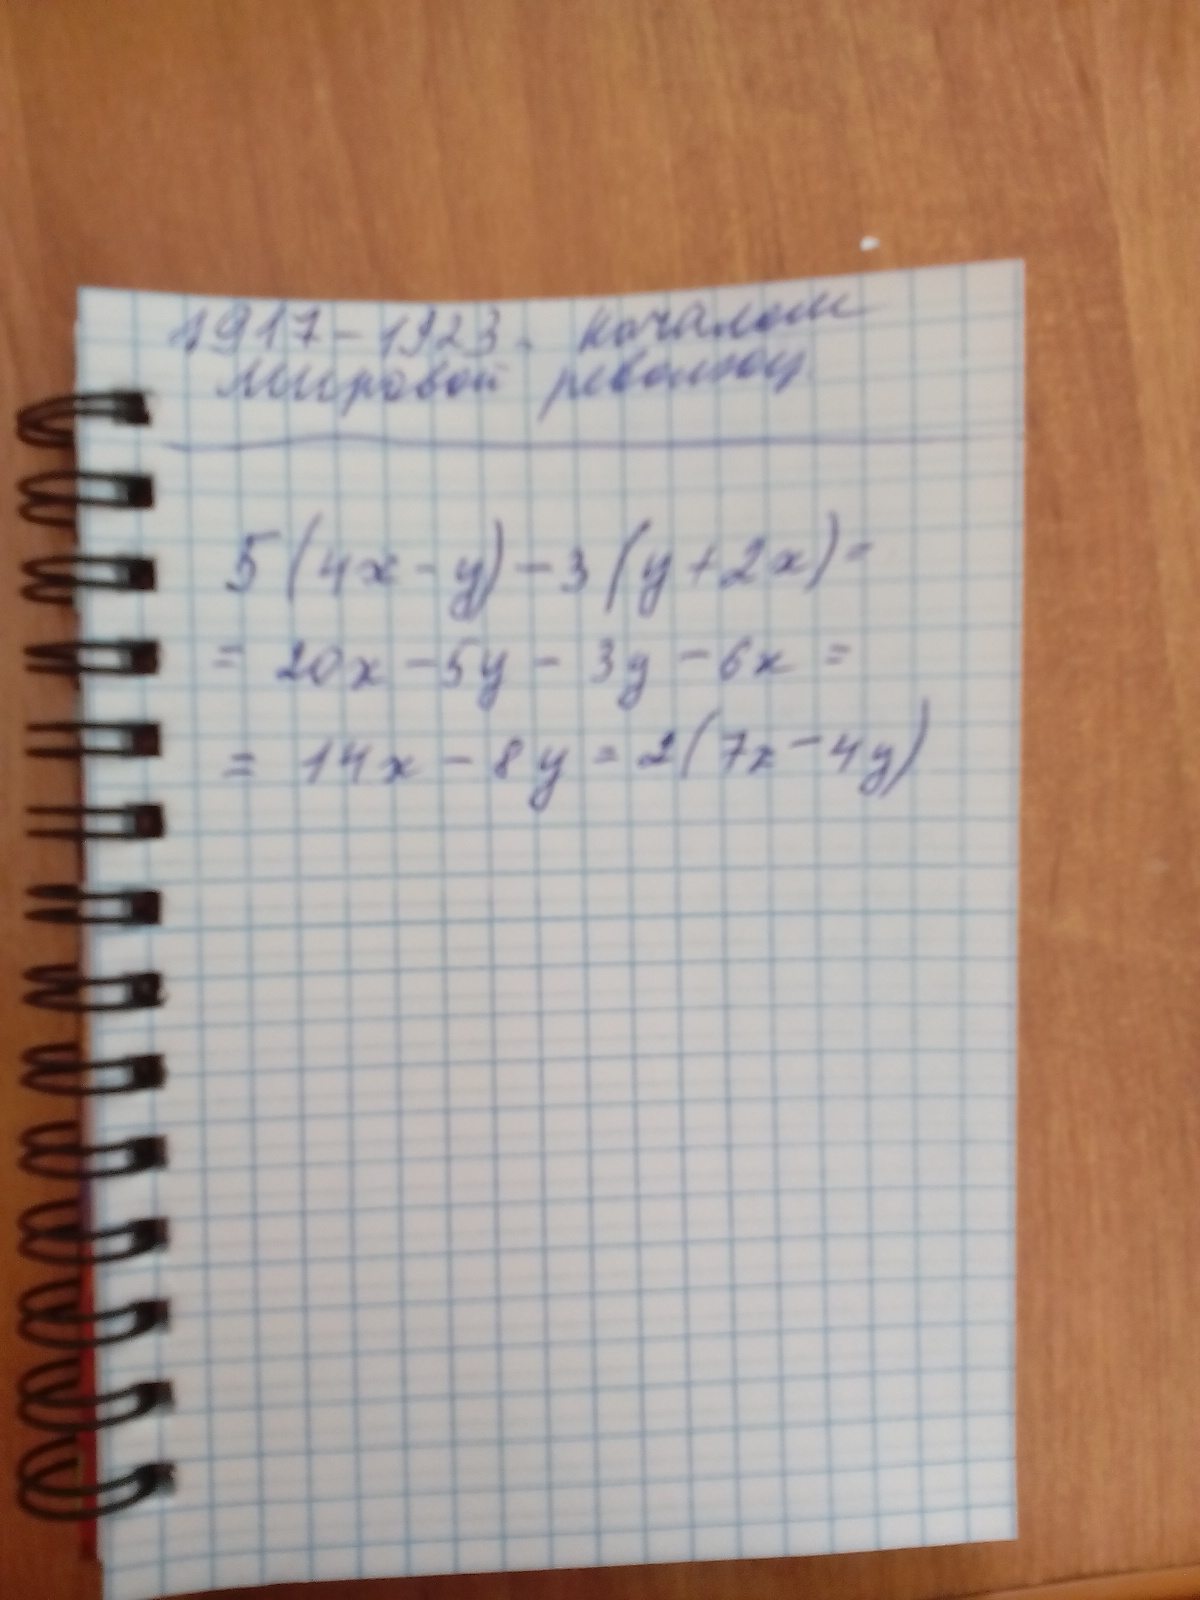 1917-1923. началом
мировой революц
5(4x-y)-3(y+2x)=
= 20x-5y-3y-6x =
= 14x-8y = 2(7x-4y)